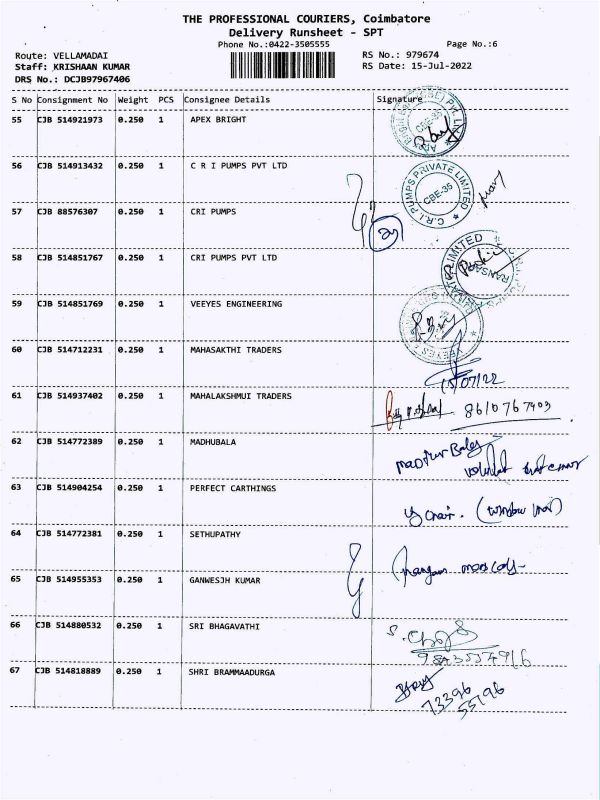 THE PROFESSIONAL COURIERS, Coimbatore
Delivery Runsheet - SPT
Phone No.:0422-3505555
Page No.:6
Route: VELLAMADAI
RS No.: 979674
Staff: KRISHAAN KUMAR
RS Date: 15-Jul-2022
DRS No.: DCJB97967406
S No Consignment No Weight PCS Consignee Details Signature
55 CJB 514921973 0.250 1 APEX BRIGHT
CBE-35
56 CJB 514913432 0.250 1 C R I PUMPS PVT LTD
C.R.I. PUMPS PRIVATE LIMITED
CBE-35
57 CJB 88576307 0.250 1 CRI PUMPS
58 CJB 514851767 0.250 1 CRI PUMPS PVT LTD
59 CJB 514851769 0.250 1 VEEYES ENGINEERING
60 CJB 514712231 0.250 1 MAHASAKTHI TRADERS
15/07/22
61 CJB 514937402 0.250 1 MAHALAKSHMUI TRADERS
8610767403
62 CJB 514772389 0.250 1 MADHUBALA
63 CJB 514904254 0.250 1 PERFECT CARTHINGS
64 CJB 514772381 0.250 1 SETHUPATHY
65 CJB 514955353 0.250 1 GANWESJH KUMAR
66 CJB 514880532 0.250 1 SRI BHAGAVATHI
67 CJB 514818889 0.250 1 SHRI BRAMMAADURGA
73396
55796